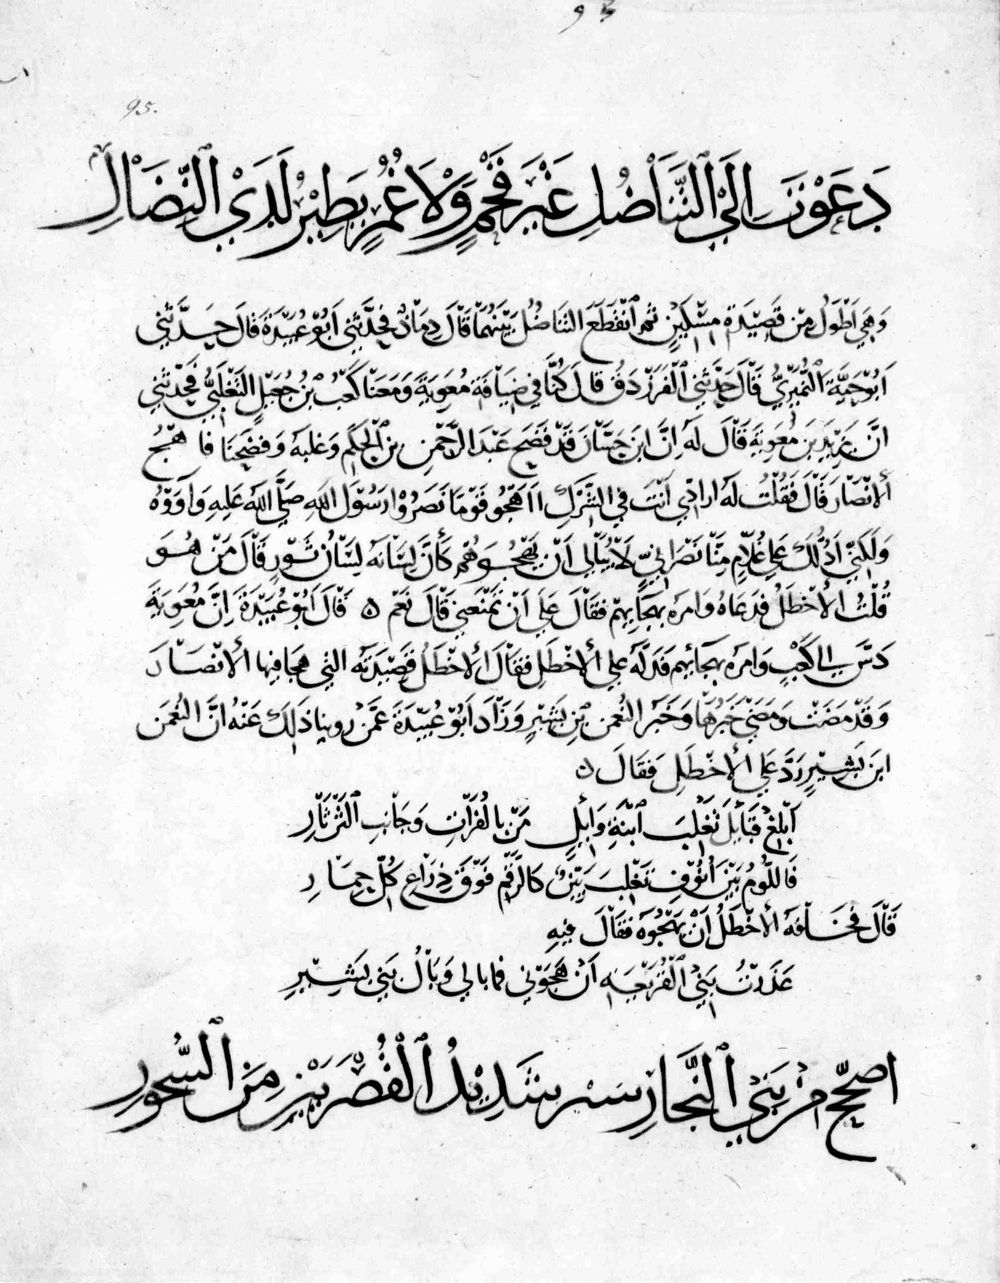 95
95.
دَعَوْتَ اِلَيَ ٱلتَّنَاضُلِ غَيْرَ فَخْمٍ وَلَا غُمُرٍ يَطِيْرُ لَدَيْ النِّضَالِ
وَهِيَ اَطْوَلُ مِنْ قَصِيْدَةِ مِسْكِيْنٍ ثم ٱنْقَطَعَ التَنَاضُلُ بَيْنَهُمَا قَالَ دِمَاذٌ فَحَدَّثَنِي اَبُوْ عُبَيْدَةَ قَالَ حَدَّثَنِي
اَبُوْ حَيَّةَ ٱلنُّمَيْرِيُّ قَالَ حَدَّثَنِي ٱلْفَرَزْدَقُ قَالَ كُنَّا فِي ضِيَافَةِ مُعَوِيَةَ وَمَعَنَا كَعْبُ بْنُ جُعَيْلٍ التَغْلَبِيُّ فَحَدَّثَنِي
انَّ يَزِيْدَ بنَ مُعَوِيَةَ قَالَ لَهُ اِنَّ ابنَ حَسَّانَ قَدْ فَضَحَ عَبْدَ الرَّحْمٰنِ بنِ الحَكَمِ وَغلبَهُ وَفَضَحَنَا فا هْجُ
ٱلانْصَارَ قَالَ فَقُلْتُ لَهُ ارادّي اَنْتَ في الشِّرْكِ أاَهْجُو قَوْمًا نَصَرُوْا رَسُوْلَ اللهِ صَلَّي اللهُ عَلَيهِ وَاٰوَوْهُ
وَلَكِنِّي اَدُلُّكَ عَلي غُلَامٍ مِنَّا نَصْرَانِيٍّ لَا يُبَالي اَنْ يَهْجُوَهُم كَأَنَّ لِسَانَهُ لِسَانُ ثَوْرٍ قَالَ مَنْ هُوَ
قُلْتُ الْاَخْطَلُ فَدَعَاهُ وَامَرَهُ بِهِجَايِهِمْ فَقَالَ عَلَي اَنْ تَمْنَعَنِي قَالَ نَعَمْ ٥ قَالَ اَبُوْ عُبَيْدَةَ اِنَّ مُعَوِيَةَ
دَسَّ الي كَعْبٍ وَامَرَهُ بهجَايِهم فَدَلَّهُ علي الاَخْطَلِ فقَالَ الاَخْطَلُ قَصِيْدَتَهُ التي هَجَا فِيها الاَنْصَارَ
وَقَدْ مَضَتْ وَمَضَي خَبَرُهَا وَخَبَرُ النُعْمٰنِ بْنِ بَشِيْرٍ وَزَادَ اَبُوْ عُبَيْدَةَ عَمَّنْ روينا ذَلِكَ عَنْهُ انَّ النُعْمٰنَ
ابنَ بَشِيْرٍ رَدَّ عَلي الاَخْطَلِ فَقَالَ ٥
اَبْلِغْ قَبَايِلَ تَغْلِبَ ٱبْنَةِ وَايلٍ مَنْ بِالْفُرَاتِ وَجَانِبِ الثَرْثَارِ
فَاللُؤْمُ بَيْنَ اُنُوْفِ تَغْلِبَ بَيِّنٌ كالرَّقْمِ فَوْقَ ذِرَاعِ كُلِّ حِمَارِ
قَالَ فَخَافَهُ الاَخْطَلُ اَنْ يَهْجُوَهُ فَقَالَ فِيهِ
عَذَرْتُ بَنِي ٱلْفُرَيْعَةِ اَنْ هَجَوْنِي فَما بالي وَبَالُ بَنِي بَشِيْرِ
اُصَيْحِحُ مِنْ بَنِي ٱلنَّجَّارِ يَسْرِي شَدِيْدُ ٱلْقُصْرَيَيْنِ مِنَ ٱلسُّحُوْرِ